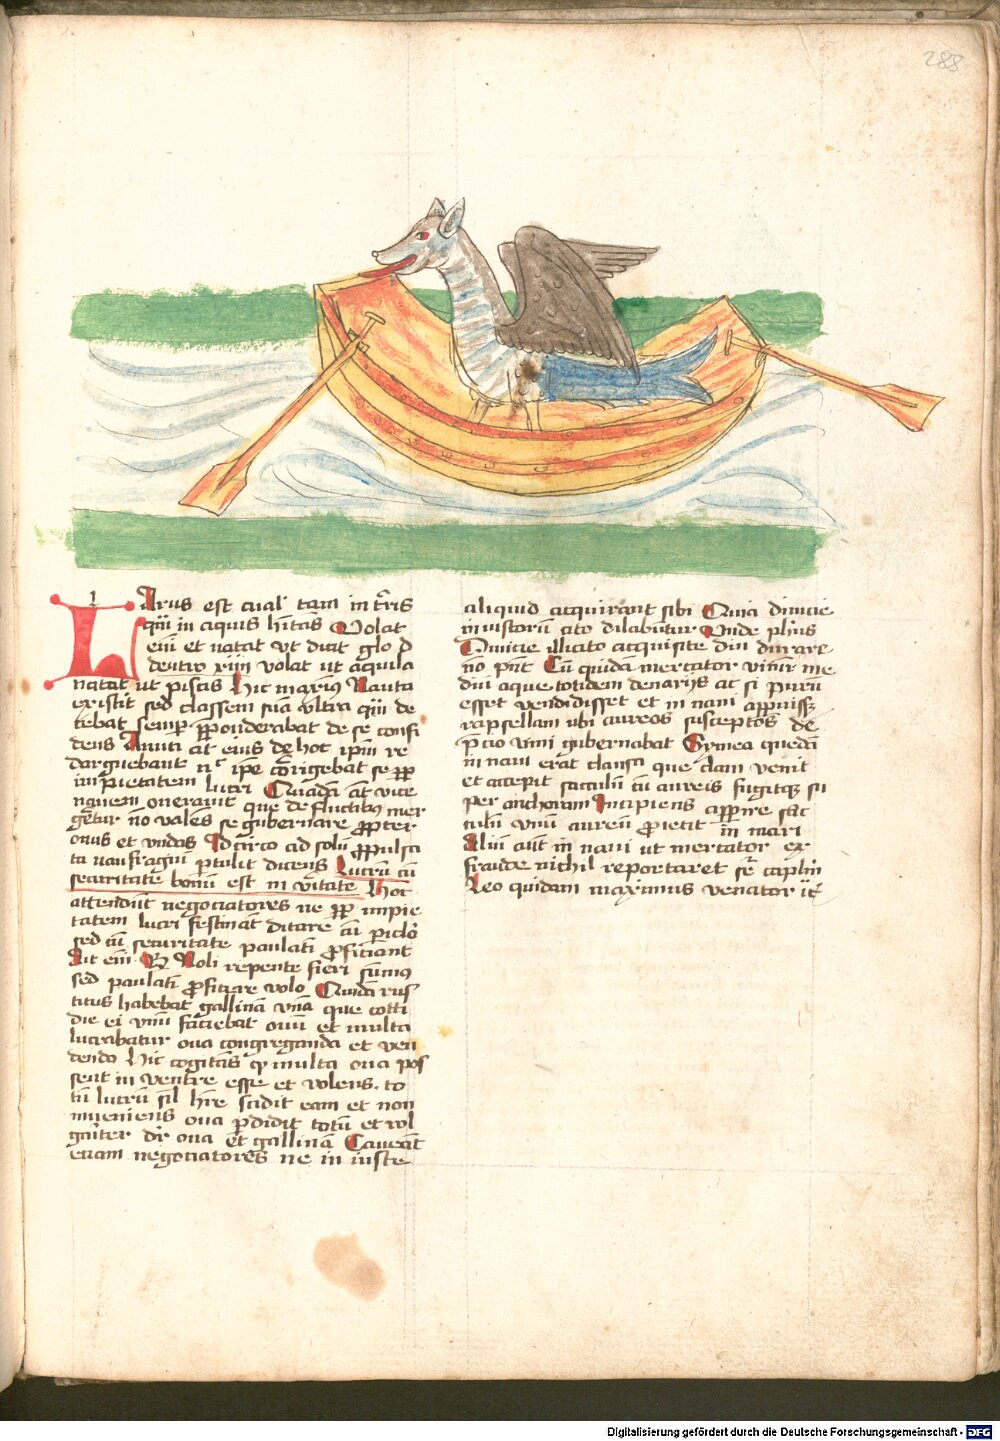 288
Larus est aīal' tam in t̄ris
q̄ in aquis hītās Volat
eni et natat vt dicit glo d
deutro xiiii volat ut aquila
natat ut piscis Hic maxiꝰ Nauta
existit sed classem sua vltra q̄
tebat semp p̄ponderabat de se confi
dens Naute at eiꝰ de hoc ip̄m re
darguebant nc ip̄e corrigebat se pp
impietatem lucri Quadā at vice
nauem onerauit que de fluctibꝰ mer
getur no vales se gubernare propter
onus et vndas Idcirco ad solū p̄pulsa
ta naufragiū p̄tulit dicens Lucrū cū
securitate bonū est in v̄itate Hoc
attendūt negociatores ne pp impie
tatem lucri festināt ditare cū piclo
sed cū securitate paulatī proficiant
Ait eni Noli repente fieri sumꝰ
sed paulatī proficere volo Quidā rus
ticus habebat gallinā vnā que cotti
die ei vnū faciebat ouū et multa
lucrabatur oua congreganda et ven
dendo Hic cogitās q multa oua pos
sent in ventre esse et volens to
tū lucrū sil' h̄re scidit eam et non
inueniens oua p̄didit totū et vl
oua et gallinā Caueāt
etiam negociatores ne in iuste
aliquid acquirant sibi Quia diuicie
iniustorū cito dilabūtur Vnde
Diuicie illicito acquisite diu durare
no pn̄t Cū quidā mercator vinū me
diū aque totidem denarijs ac si purū
esset vendidisset et in naui
ubi aureos susceptos de
p̄cio vini gubernabat Symea quedā
in naui erat clausa que clam venit
et accepit sacculū cū aureis fugitqꝫ su
per anchoram Incipiens ap̄ire sac
culū vnū aureū proiecit in mari
Aliū aūt in naui ut mercator ex
fraude nichil reportaret
Leo quidam maximus venator
Digitalisierung gefördert durch die Deutsche Forschungsgemeinschaft - DFG